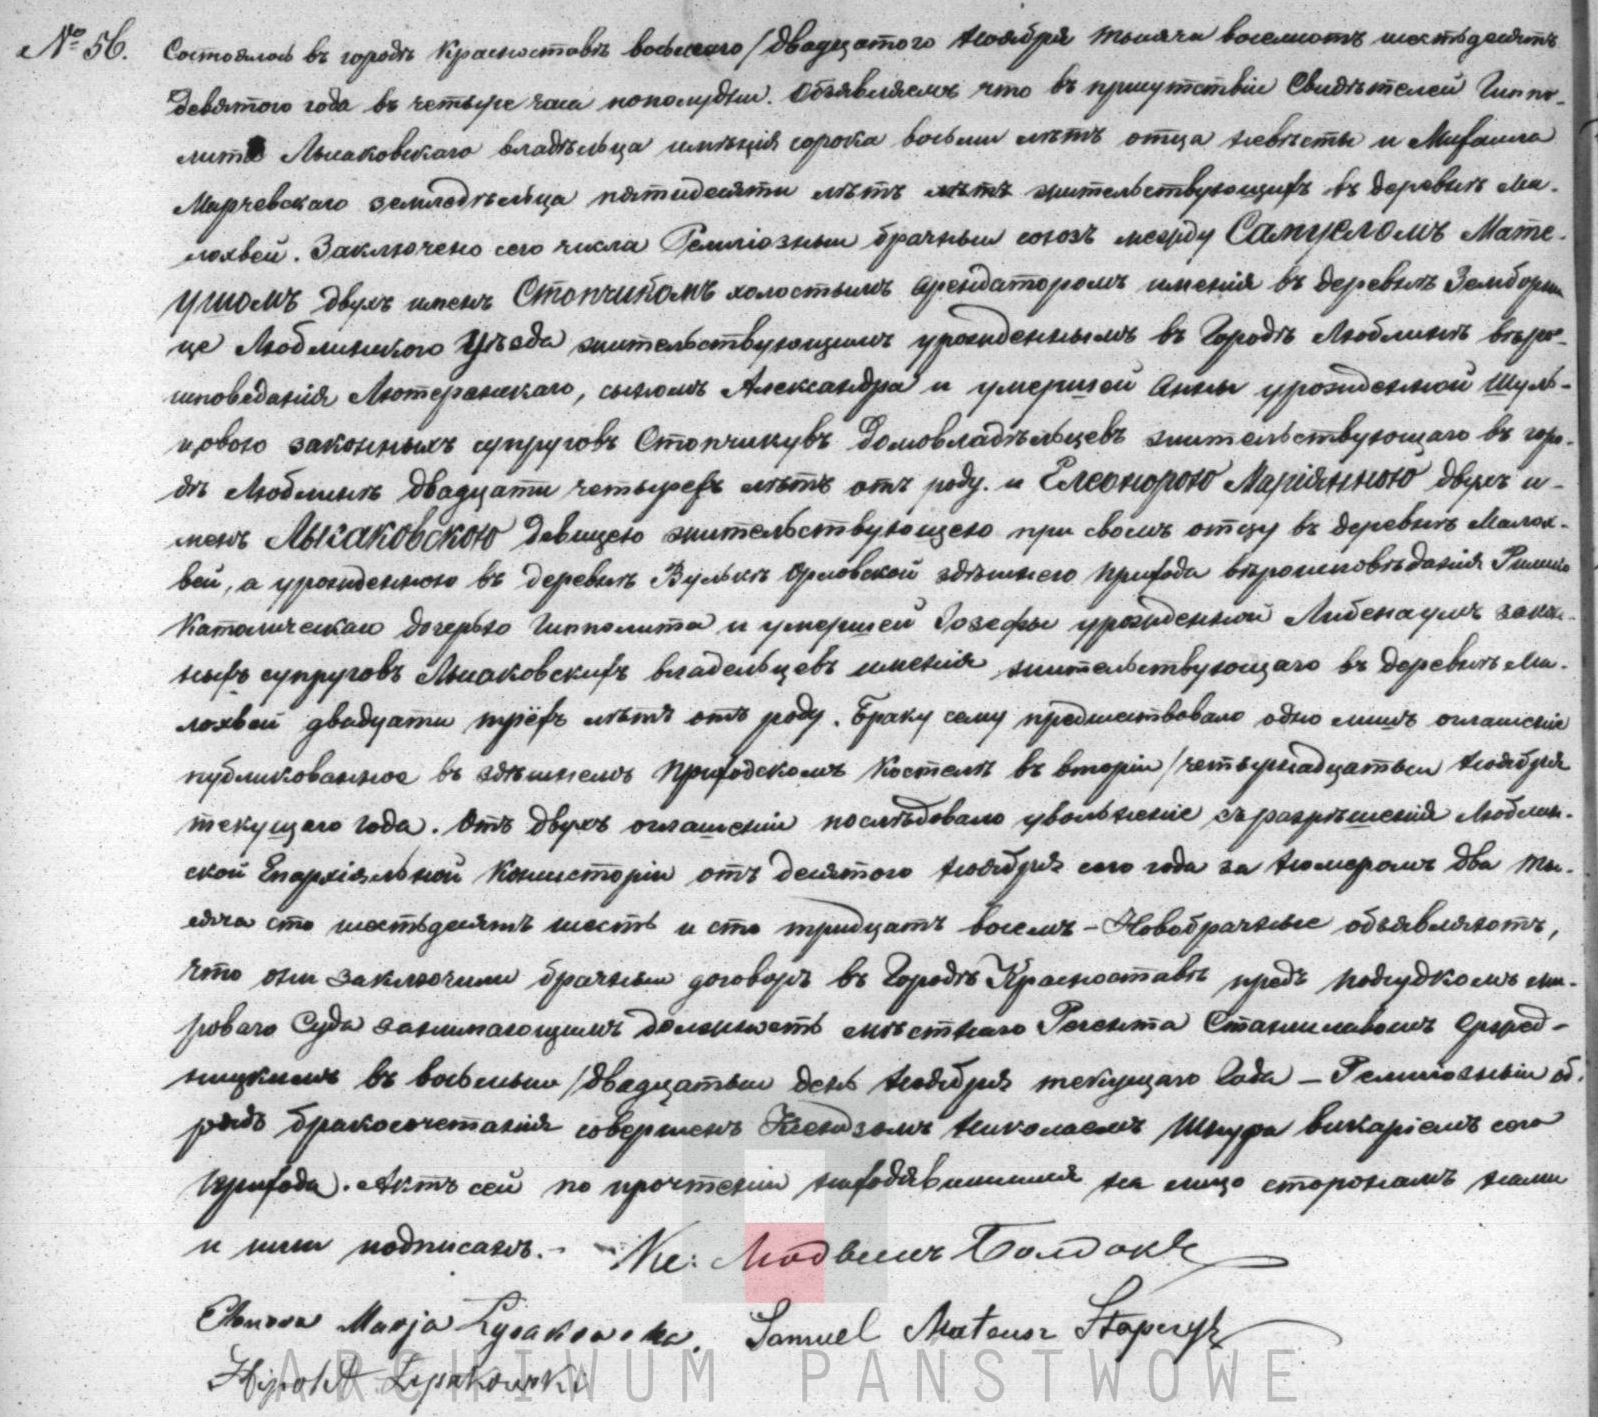 № 56. Состоялось въ городѣ Красноставѣ восьмаго / двадцатого Ноября тысяча восемьсотъ шестьдесятъ
девятого года въ четыре часа пополудни. Объявляемъ что въ присутствіи Свидѣтелей Гиппо-
лита Лысаковскаго владѣльца имѣнія сорока восьми лѣтъ отца невѣсты и Михаила
Марчевскаго земледѣльца пятидесяти лѣтъ лѣтъ жительствующихъ въ деревнѣ Ма-
лохвей. Заключено сего числа Религіозный брачный союзъ между Самуеломъ Мате-
ушомъ двухъ именъ Стопчикомъ холостымъ арендаторомъ именія въ деревнѣ Земборжи
це Люблинского Уѣзда жительствующимъ урожденнымъ въ Городѣ Люблинѣ вѣро-
исповеданія Лютеранскаго, сыномъ Александра и умершей Анны урожденной Шуль-
цовою законныхъ супруговъ Стопчикувъ домовладѣльцевъ жительствующаго въ горо-
дѣ Люблинѣ двадцати четырехъ лѣтъ отъ роду. и Елеонорою Маріянною двухъ и-
менъ Лысаковскою девицею жительствующею при своемъ отцу въ деревнѣ Малох-
вей, а урожденною въ деревнѣ Вулькѣ Орловской здѣшнего прихода вѣроисповѣданія Римско
Католическаго дочерью Гипполита и умершей Іозефы урожденной Либенаумъ закон-
ныхъ супруговъ Лысаковскихъ владельцевъ имения жительствующаго въ деревнѣ Ма-
лохвей двадцати трёхъ лѣтъ отъ роду. Браку сему предшествовало одно лишъ оглашеніе
публикованное въ здѣшнемъ приходскомъ Костелѣ въ вторій / четырнадцатый Ноября
текущаго года. Отъ двухъ оглашеній послѣдовало увольненіе съ разрѣшенія Люблин-
ской Епархіяльной Консисторіи отъ десятого Ноября сего года за Номеромъ два ты-
сяча сто шестьдесятъ шесть и сто тридцать восемъ – Новобрачные объявляютъ,
что они заключили брачный договоръ въ Городѣ Красноставѣ предъ подсудкомъ ми-
роваго Суда занимающимъ должность мѣстнаго Регента Станиславомъ
въ восьмый / двадцатый день Ноября текущаго Года – Религіозный об-
рядъ бракосочетанія совершенъ Ксендзомъ Николаемъ Шпура викаріемъ сего
прихода. Актъ сей по прочтеніи находявшимся на лицо сторонамъ нами
и ими подписанъ. – Кс: Людвикъ
Eleonora Marja Łysakowska, Samuel Mateusz Stopczyk
Hipolit Łysakowski
ARCHIWUM PAŃSTWOWE